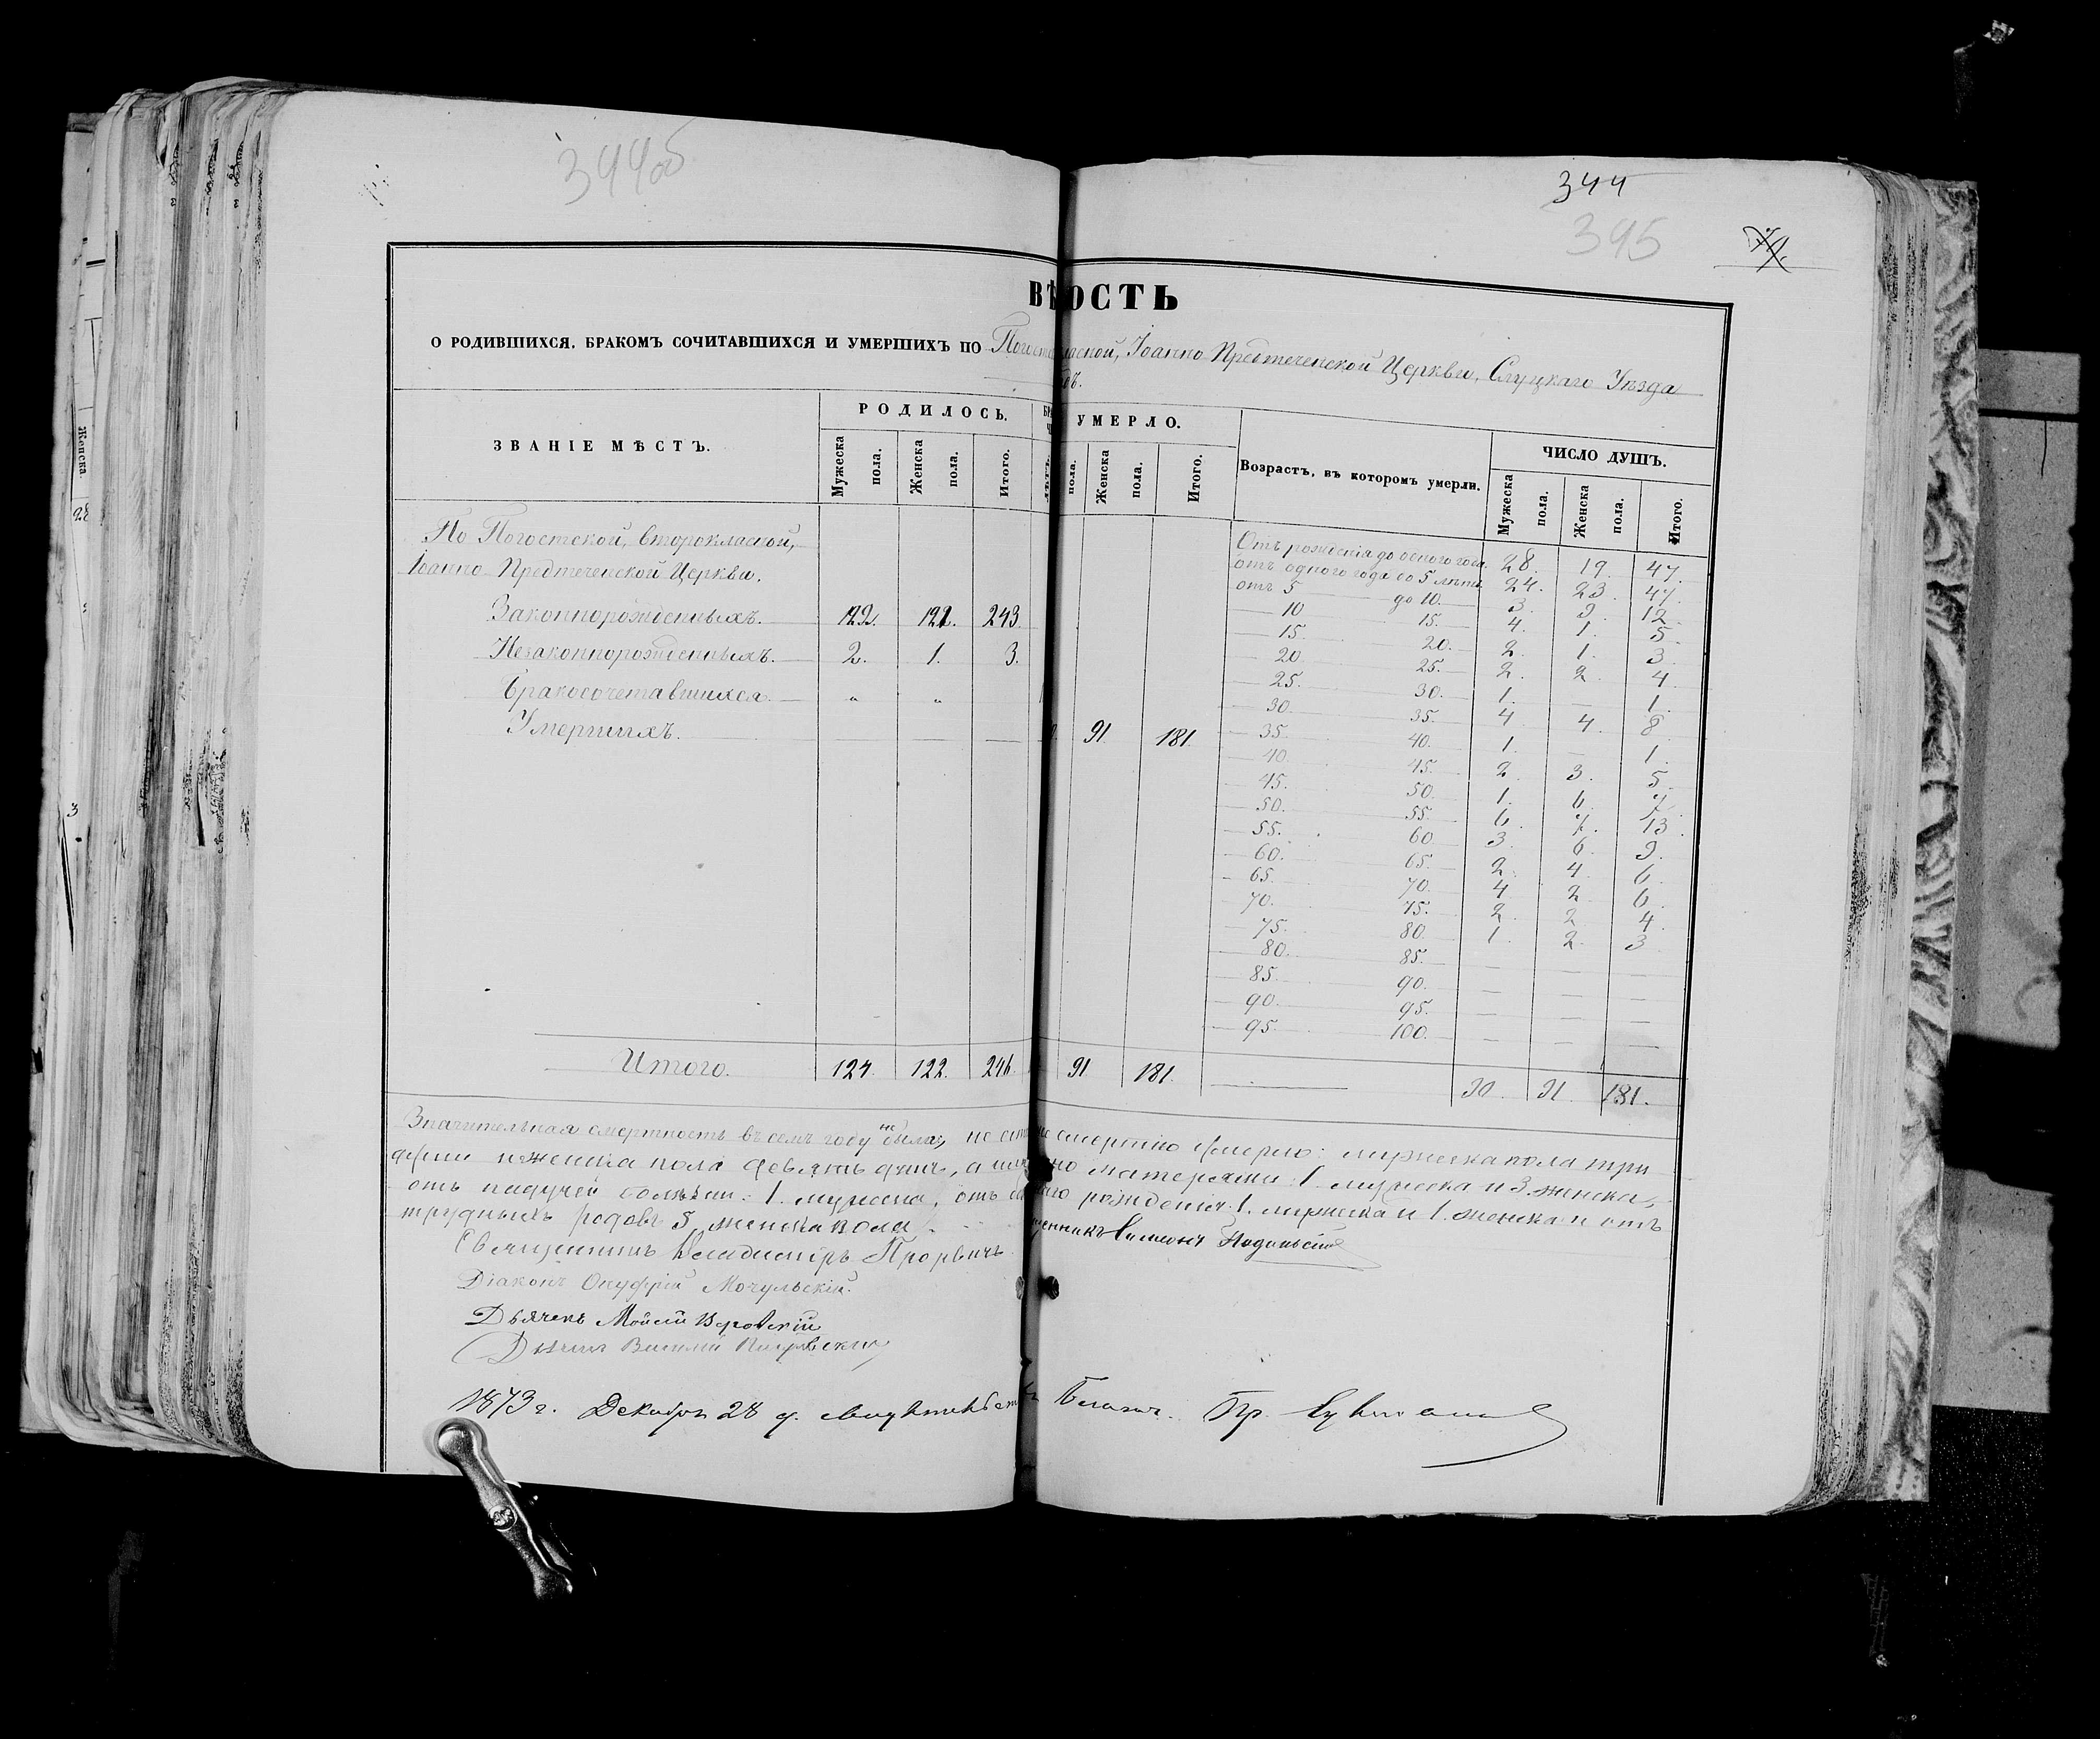 344об
344
395
ВѢ ОСТЬ
О РОДИВШИХСЯ, БРАКОМЪ СОЧИТАВШИХСЯ И УМЕРШИХЪ ПО Погост ласной, Іоанно-Предтеченской Церкви, Слуцкаго Уѣзда
ЗВАНІЕ МѢСТЪ. РОДИЛОСЬ. УМЕРЛО. Возрастъ, въ которомъ умерли. ЧИСЛО ДУШЪ.
Мужеска пола. Женска пола. Итого. пола. Женска пола. Итого. Мужеска пола. Женска пола. Итого.
По Погостской, второкласной,
Іоанно-Предтеченской Церкви.
Законнорожденныхъ. 122. 121. 243.
Незаконнорожденныхъ. 2. 1. 3.
Бракосочетавшихся. " "
Умершихъ. 91 181
Отъ рожденія до одного года. 28. 19. 47.
отъ одного года до 5 лѣтъ 24. 23. 47.
отъ 5 до 10. 3. 9. 12.
10 15. 4. 1. 5.
15. 20. 2. 1. 3.
20 25. 2. 2. 4.
25. 30. 1. — 1.
30. 35. 4. 4. 8.
35. 40. 1. — 1.
40. 45. 2. 3. 5.
45. 50. 1. 6. 7.
50. 55. 6. 7. 13.
55. 60. 3. 6. 9.
60. 65. 2. 4. 6.
65. 70. 4 2 6.
70. 75. 2. 2 4.
75. 80. 1. 2. 3
80. 85. — — —
85. 90. — — —
90. 95. — — —
95. 100. — — —
Итого. 124. 122. 246. 91 181. 90. 91. 181.
Значительная смертность въ семъ году не была, но смертію умерло: мужеска пола три
души и женска пола девять душъ, а матерями: 1 мужеска и 3. женска,
отъ падучей болѣзни: 1. мужеска, отъ рожденія: 1. мужеска и 1. женска и отъ
трудныхъ родовъ 5 женска пола.
Священникъ Владиміръ Прорвичъ Симеонъ
Діаконъ Онуфрій Мочульскій.
Дьячекъ Мойсій
Василій
1873 г. Декабря 28 д. Пр.
Женска.
3